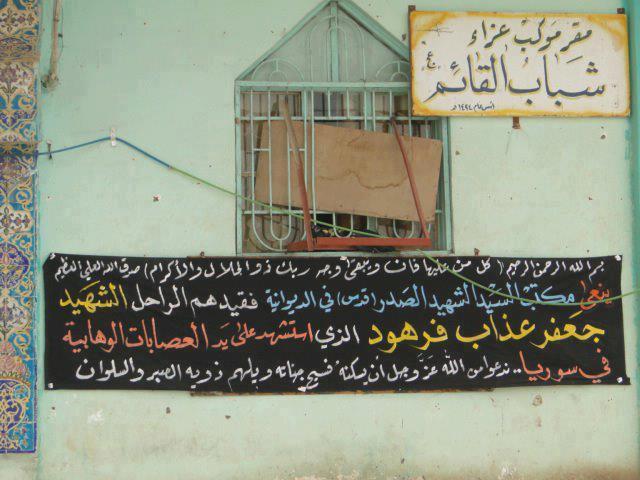 مقر موكب عزاء
شباب القائم عج
اسس عام ١٤٢٤ هـ
بسم الله الرحمن الرحيم (كل من عليها فان ويبقى وجه ربك ذو الجلال والأكرام) صدق الله العلي العظيم
ينعى مكتب السيد الشهيد الصدر (قدس) في الديوانية فقيدهم الراحل الشهيد
جعفر عذاب فرهود الذي استشهد على يد العصابات الوهابية
في سوريا.. ندعوا من الله عز وجل أن يسكنه فسيح جناته ويلهم ذويه الصبر والسلوان